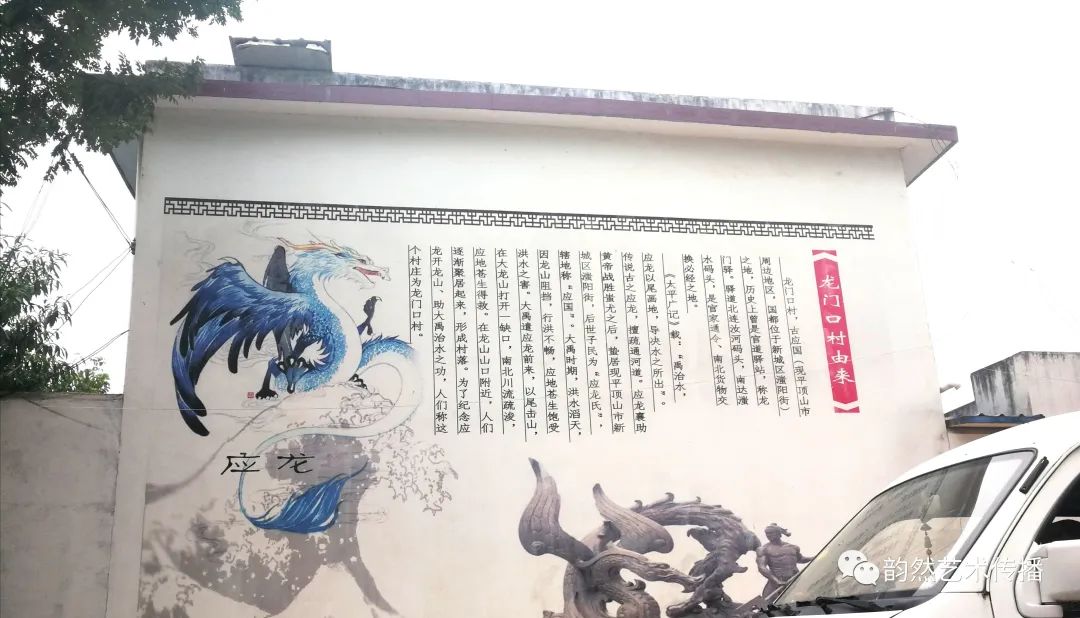 龙门口村由来
龙门口村，古应国（现平顶山市
周边地区，国都位于新城区滍阳街）
之地，历史上曾是官道驿站，称龙
门驿。驿道北连汝河码头，南达滍
水码头，是官家通令、南北货物交
换必经之地。
《太平广记》载：“禹治水，
应龙以尾画地，导决水之所出”。
传说古之应龙，擅疏通河道。应龙襄助
黄帝战胜蚩尤之后，蛰居现平顶山市新
城区滍阳街，后世子民为“应龙氏”，
辖地称“应国”。大禹时期，洪水滔天，
因龙山阻挡，行洪不畅，应地苍生饱受
洪水之害。大禹遣应龙前来，以尾击山，
在大龙山打开一缺口，南北川流疏浚，
应地苍生得救。在龙山山口附近，人们
逐渐聚居起来，形成村落。为了纪念应
龙开龙山、助大禹治水之功，人们称这
个村庄为龙门口村。
应龙
韵然艺术传播